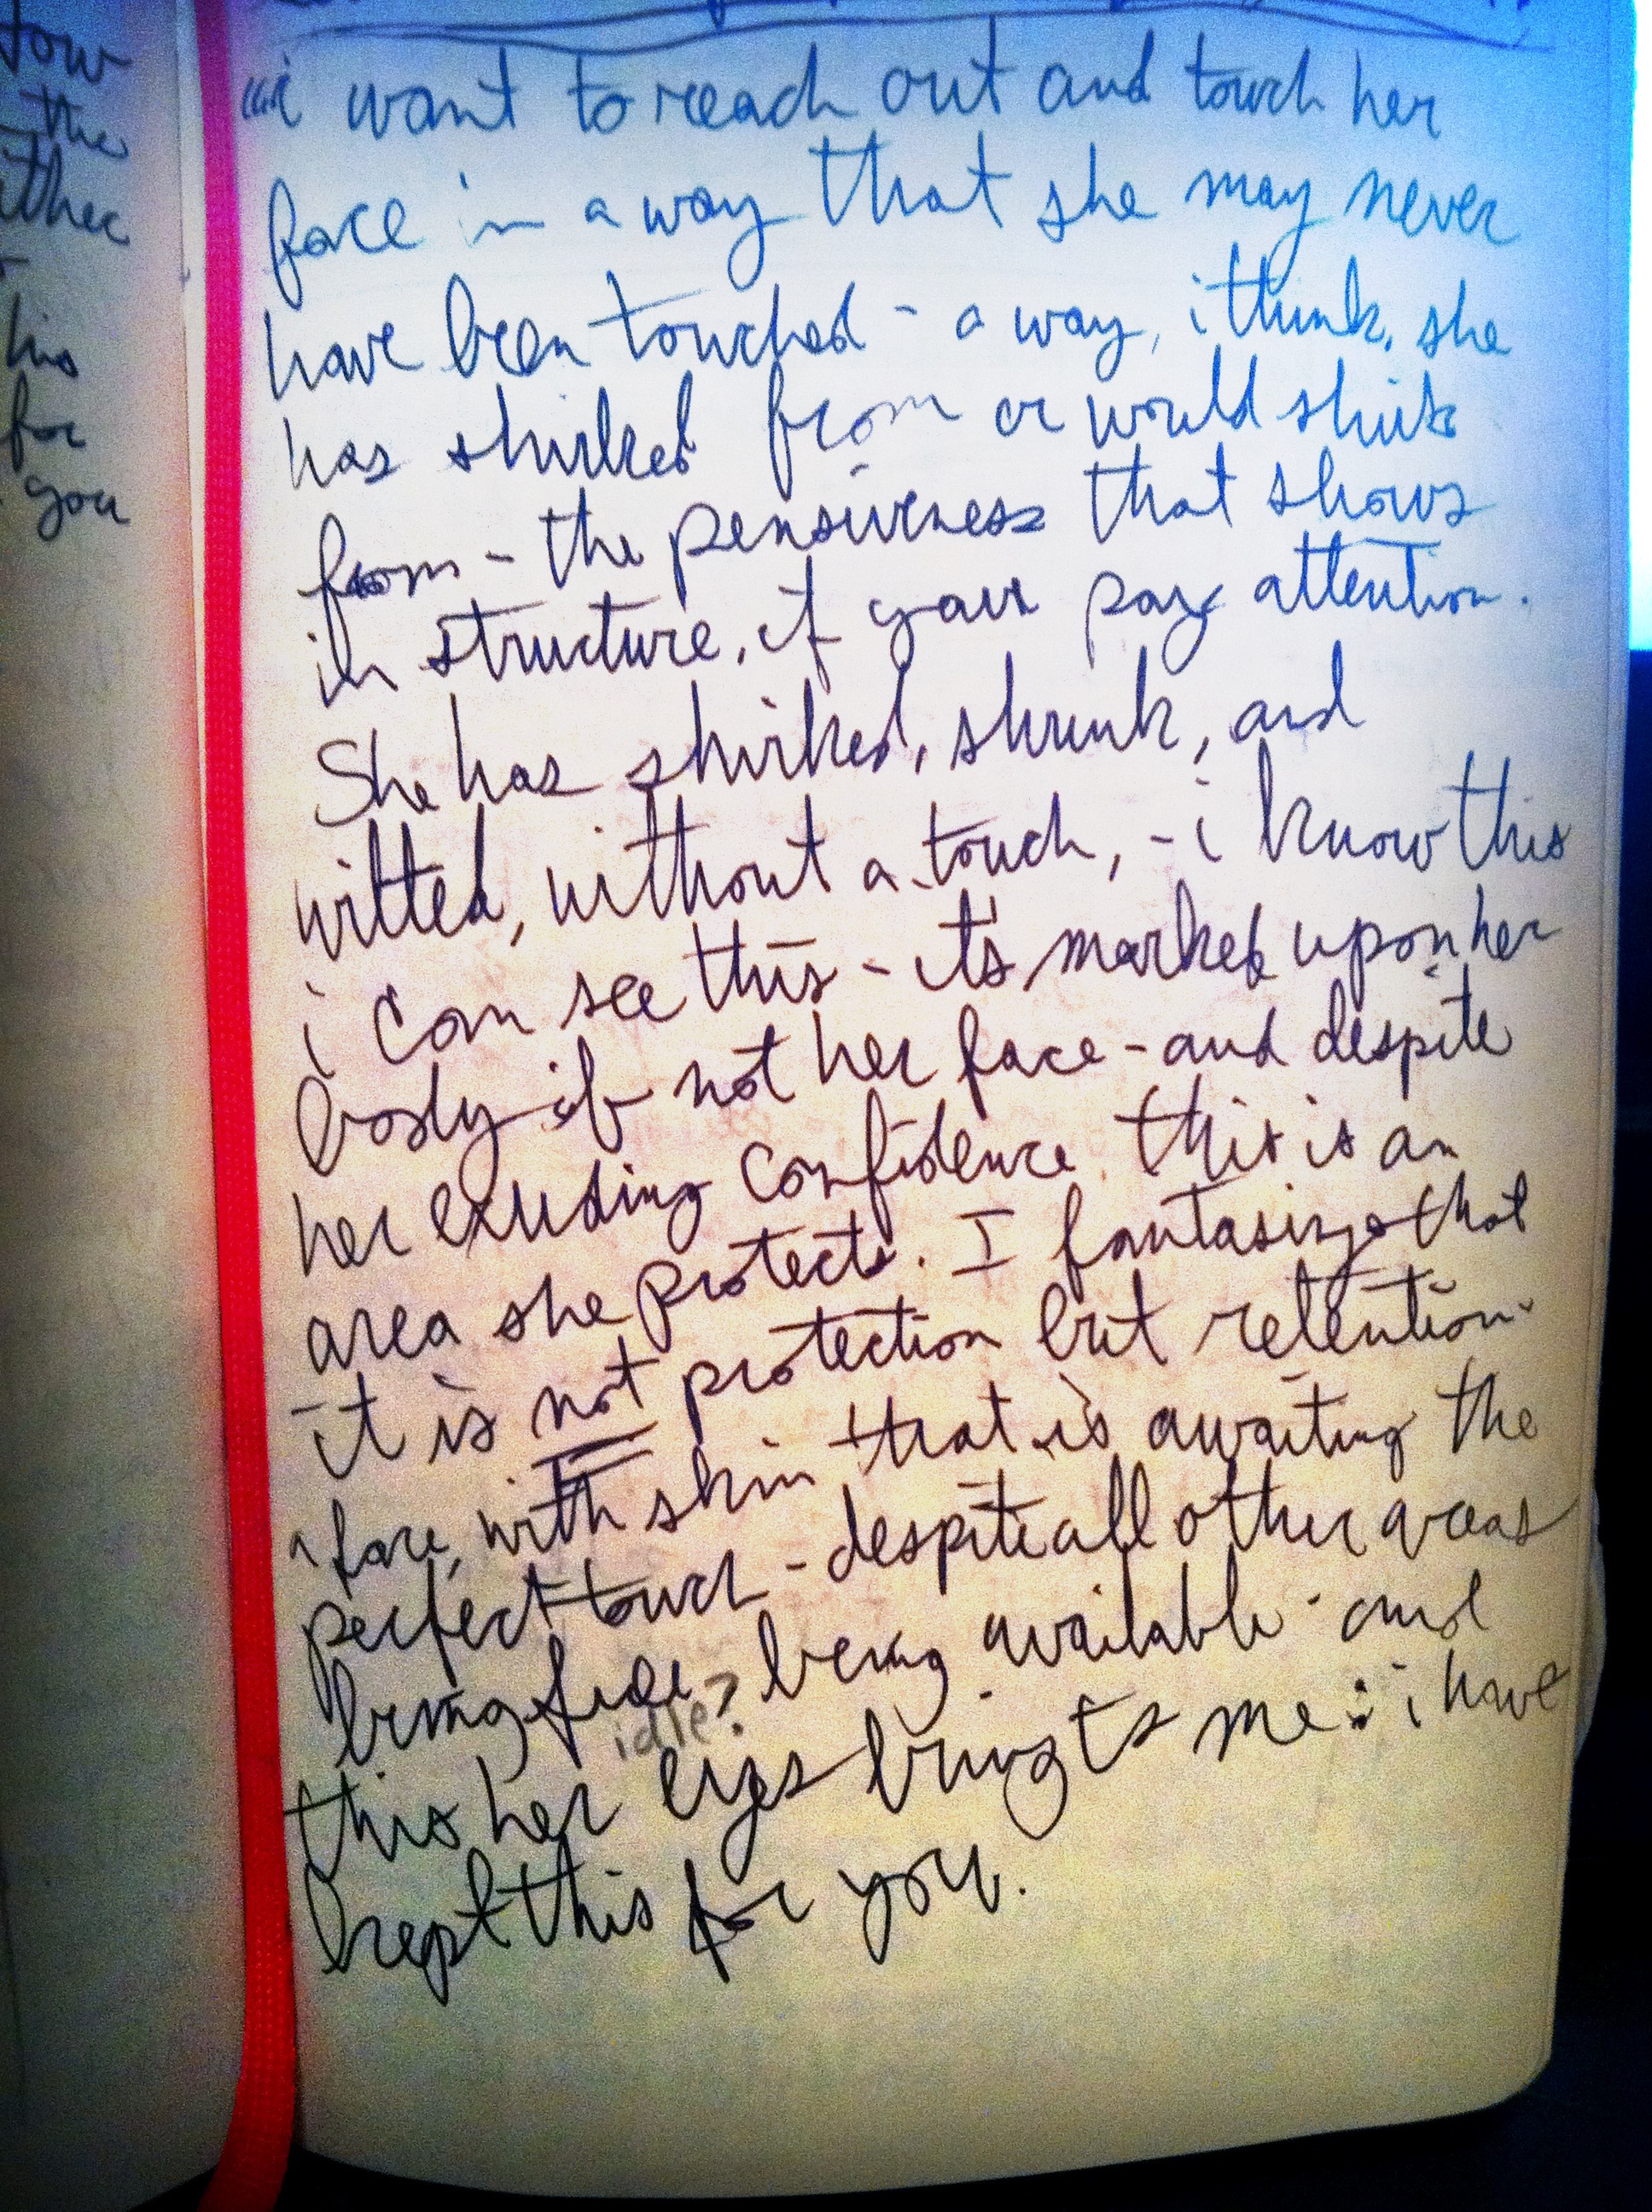 tow
the
ither
his
for
you
"i want to reach out and touch her
face in a way that she may never
have been touched - a way, i think, she
has shirked from or would shirk
from - the pensiveness that shows
in structure, if you pay attention.
She has shirked, shrunk, and
wilted, without a touch, - i know this
i can see this - it's marked upon her
body if not her face - and despite
her exuding confidence, this is an
area she protects. I fantasize that
- it is not protection but retention -
a face, with skin that is awaiting the
perfect touch - despite all other areas
being free, being available - and
idle?
this her eyes brings to me: i have
kept this for you.